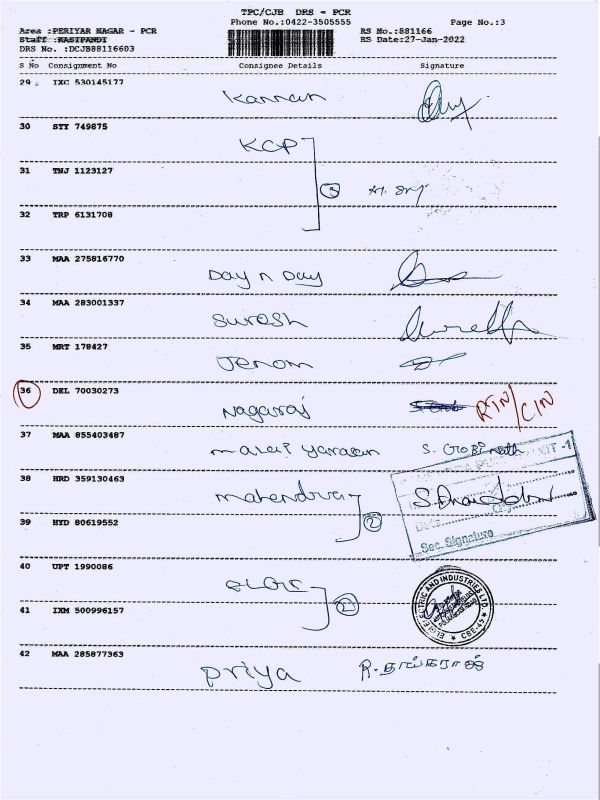 TPC/CJB DRS - PCR
Phone No.:0422-3505555 Page No.:3
Area :PERIYAR NAGAR - PCR RS No.:881166
Staff :KASIPANDI RS Date:27-Jan-2022
DRS No. :DCJB88116603
S No Consignment No Consignee Details Signature
29 IXC 530145177
Kannan
30 STY 749875
KCP
31 TNJ 1123127
3
32 TRP 6131708
33 MAA 275816770
Day n Day
34 MAA 283001337
Suresh
35 MRT 178427
Jenom
36 DEL 70030273
Nagaraj RTN/CIN
37 MAA 855403487
malai yarasan S. Gopinath
38 HRD 359130463
mahendra
2
39 HYD 80619552
Sec. Signature
40 UPT 1990086
ELGI
2
41 IXM 500996157
ELGI ELECTRIC AND INDUSTRIES LTD. CBE-45
42 MAA 285877363
Priya R.தங்கராஜ்